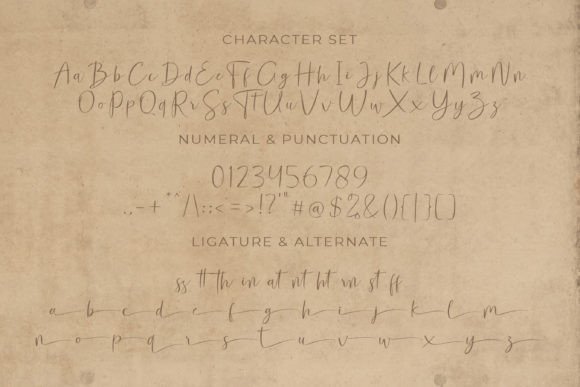 CHARACTER SET
Aa Bb Cc Dd Ee Ff Gg Hh Ii Jj Kk Ll Mm Nn
Oo Pp Qq Rr Ss Tt Uu Vv Ww Xx Yy Zz
NUMERAL & PUNCTUATION
0123456789
.,-+*^/\:;<=>!?'"#@$&(){|}[]
LIGATURE & ALTERNATE
ss tt th in at nt ht un st ff
a b c d e f g h i j k l m
n o p q r s t u v w x y z